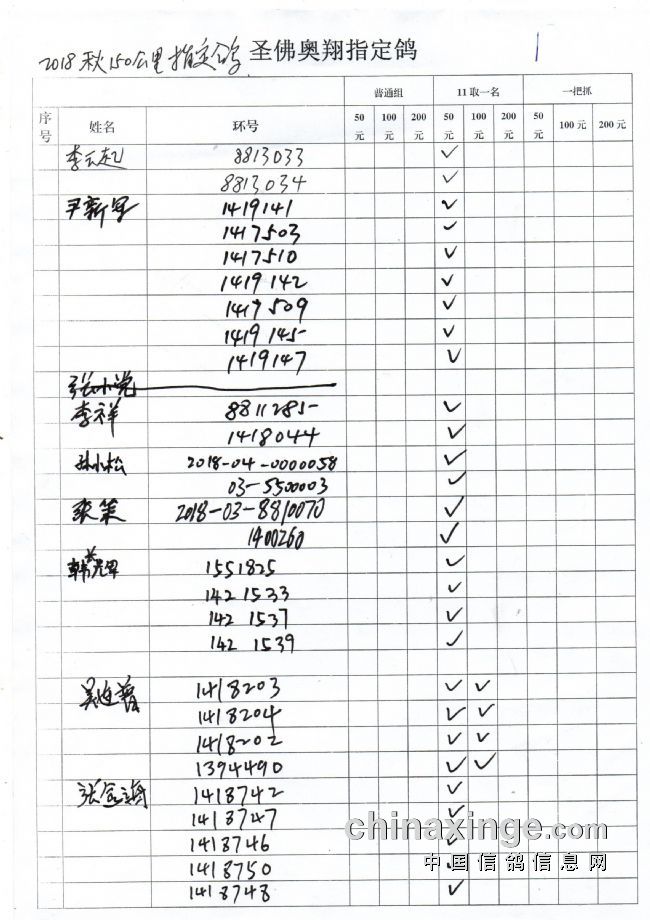 2018秋150公里指定鸽 圣佛奥翔指定鸽 1
普通组 11取一名 一把抓
序号 姓名 环号 50元 100元 200元 50元 100元 200元 50元 100元 200元
李云起 8813033 ✓
8813034 ✓
尹新军 1419141 ✓
1417503 ✓
1417510 ✓
1419142 ✓
1417509 ✓
1419145 ✓
1419147 ✓
张小党
李祥 8811285 ✓
1418044 ✓
孙小松 2018-04-0000058 ✓
03-5500003 ✓
栾策 2018-03-8810070 ✓
1400260 ✓
韩长辉 1551825 ✓
1421533 ✓
1421537 ✓
1421539 ✓
吴连 1418203 ✓ ✓
1418204 ✓ ✓
1418202 ✓ ✓
1394490 ✓ ✓
张 海 1418742 ✓
1418747 ✓
1418746 ✓
1418750 ✓
1418748 ✓
chinaxinge.com
中国信鸽信息网